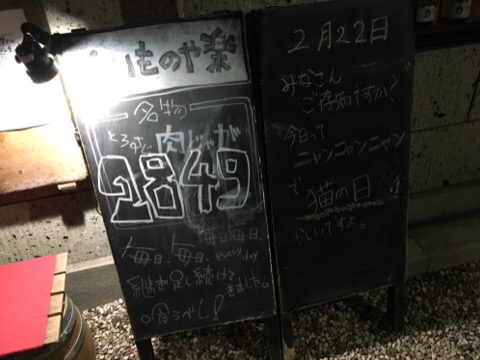 ものや楽
名物
とろすじ肉じゃが
2849
毎日毎日、
毎日、毎日、everyday
継ぎ足し続けて
きました。
食うべし!
2月22日
みなさん
ご存知ですか?
今日って
ニャンニャンニャン
で猫の日!!
らしいですよ。